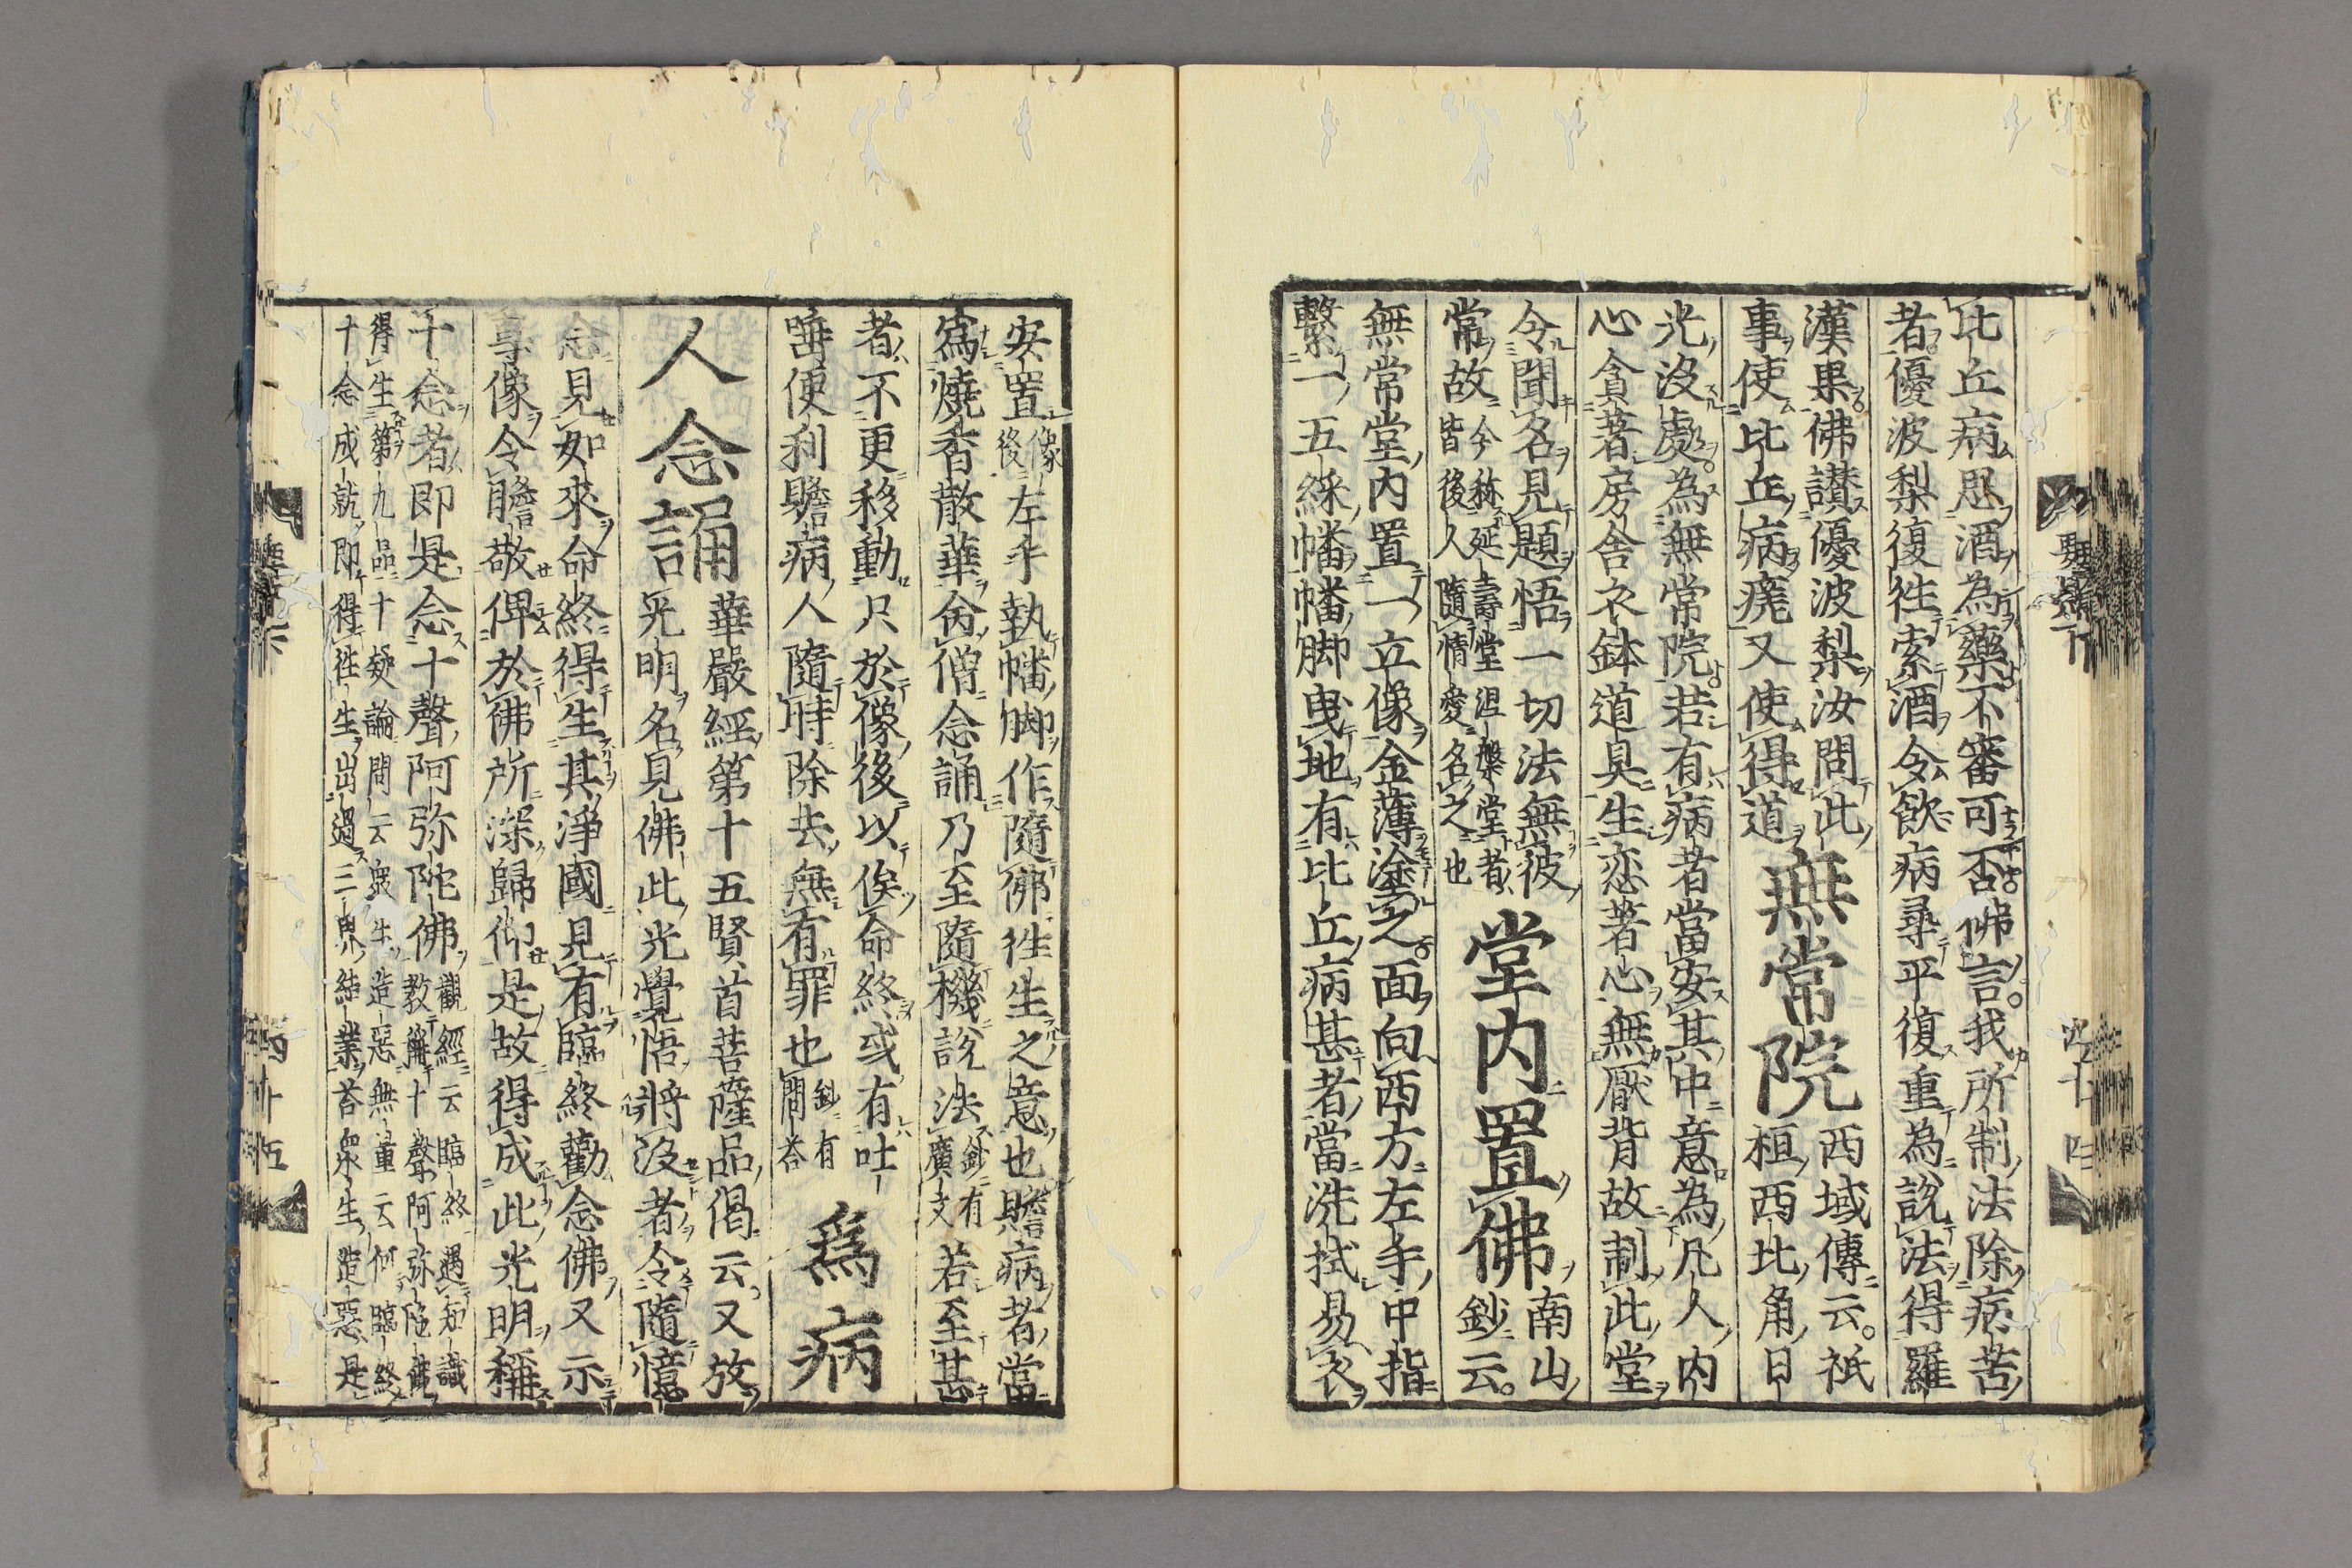 比丘病思酒為藥不審可否佛言我所制法除病苦
者優波梨復徃索酒令飲病尋平復重為說法得羅
漢果佛讃優波梨汝問此
事使比丘病癒又使得道
無常院
西域傳云祇
桓西北角日
光没處為無常院若有病者當安其中意為凡人内
心貪著房舎衣鉢道具生恋著心無厭背故制此堂
令聞名見題悟一切法無彼
常故
今称延壽堂涅槃堂者
皆後人隨情愛名之也
堂内置佛
南山
鈔云
無常堂内置一立像金薄塗之面向西方左手中指
繫一五綵幡幡脚曳地有比丘病甚者當洗拭易衣
安置
像
後
左手執幡脚作隨佛徃生之意也贍病者當
為燒香散華舎僧念誦乃至隨機說法
鈔有
廣文
若至甚
者不更移動只於像後以俟命終或有吐
唾便利贍病人隨時除去無有罪也
鈔有
問荅
為病
人念誦
華嚴經第十五賢首菩薩品偈云又放
光明名見佛此光覺悟將没者令隨憶
念見如來命終得生其淨國見有臨終勸念佛又示
尊像令瞻敬俾於佛所深歸仰是故得成此光明稱
十念者即是念十聲阿弥陀佛
觀經云臨終遇知識
教稱十聲阿弥陀佛
得生第九品十疑論問云衆生造惡無量云何臨終
十念成就即得徃生出過三界結業荅衆生造惡是